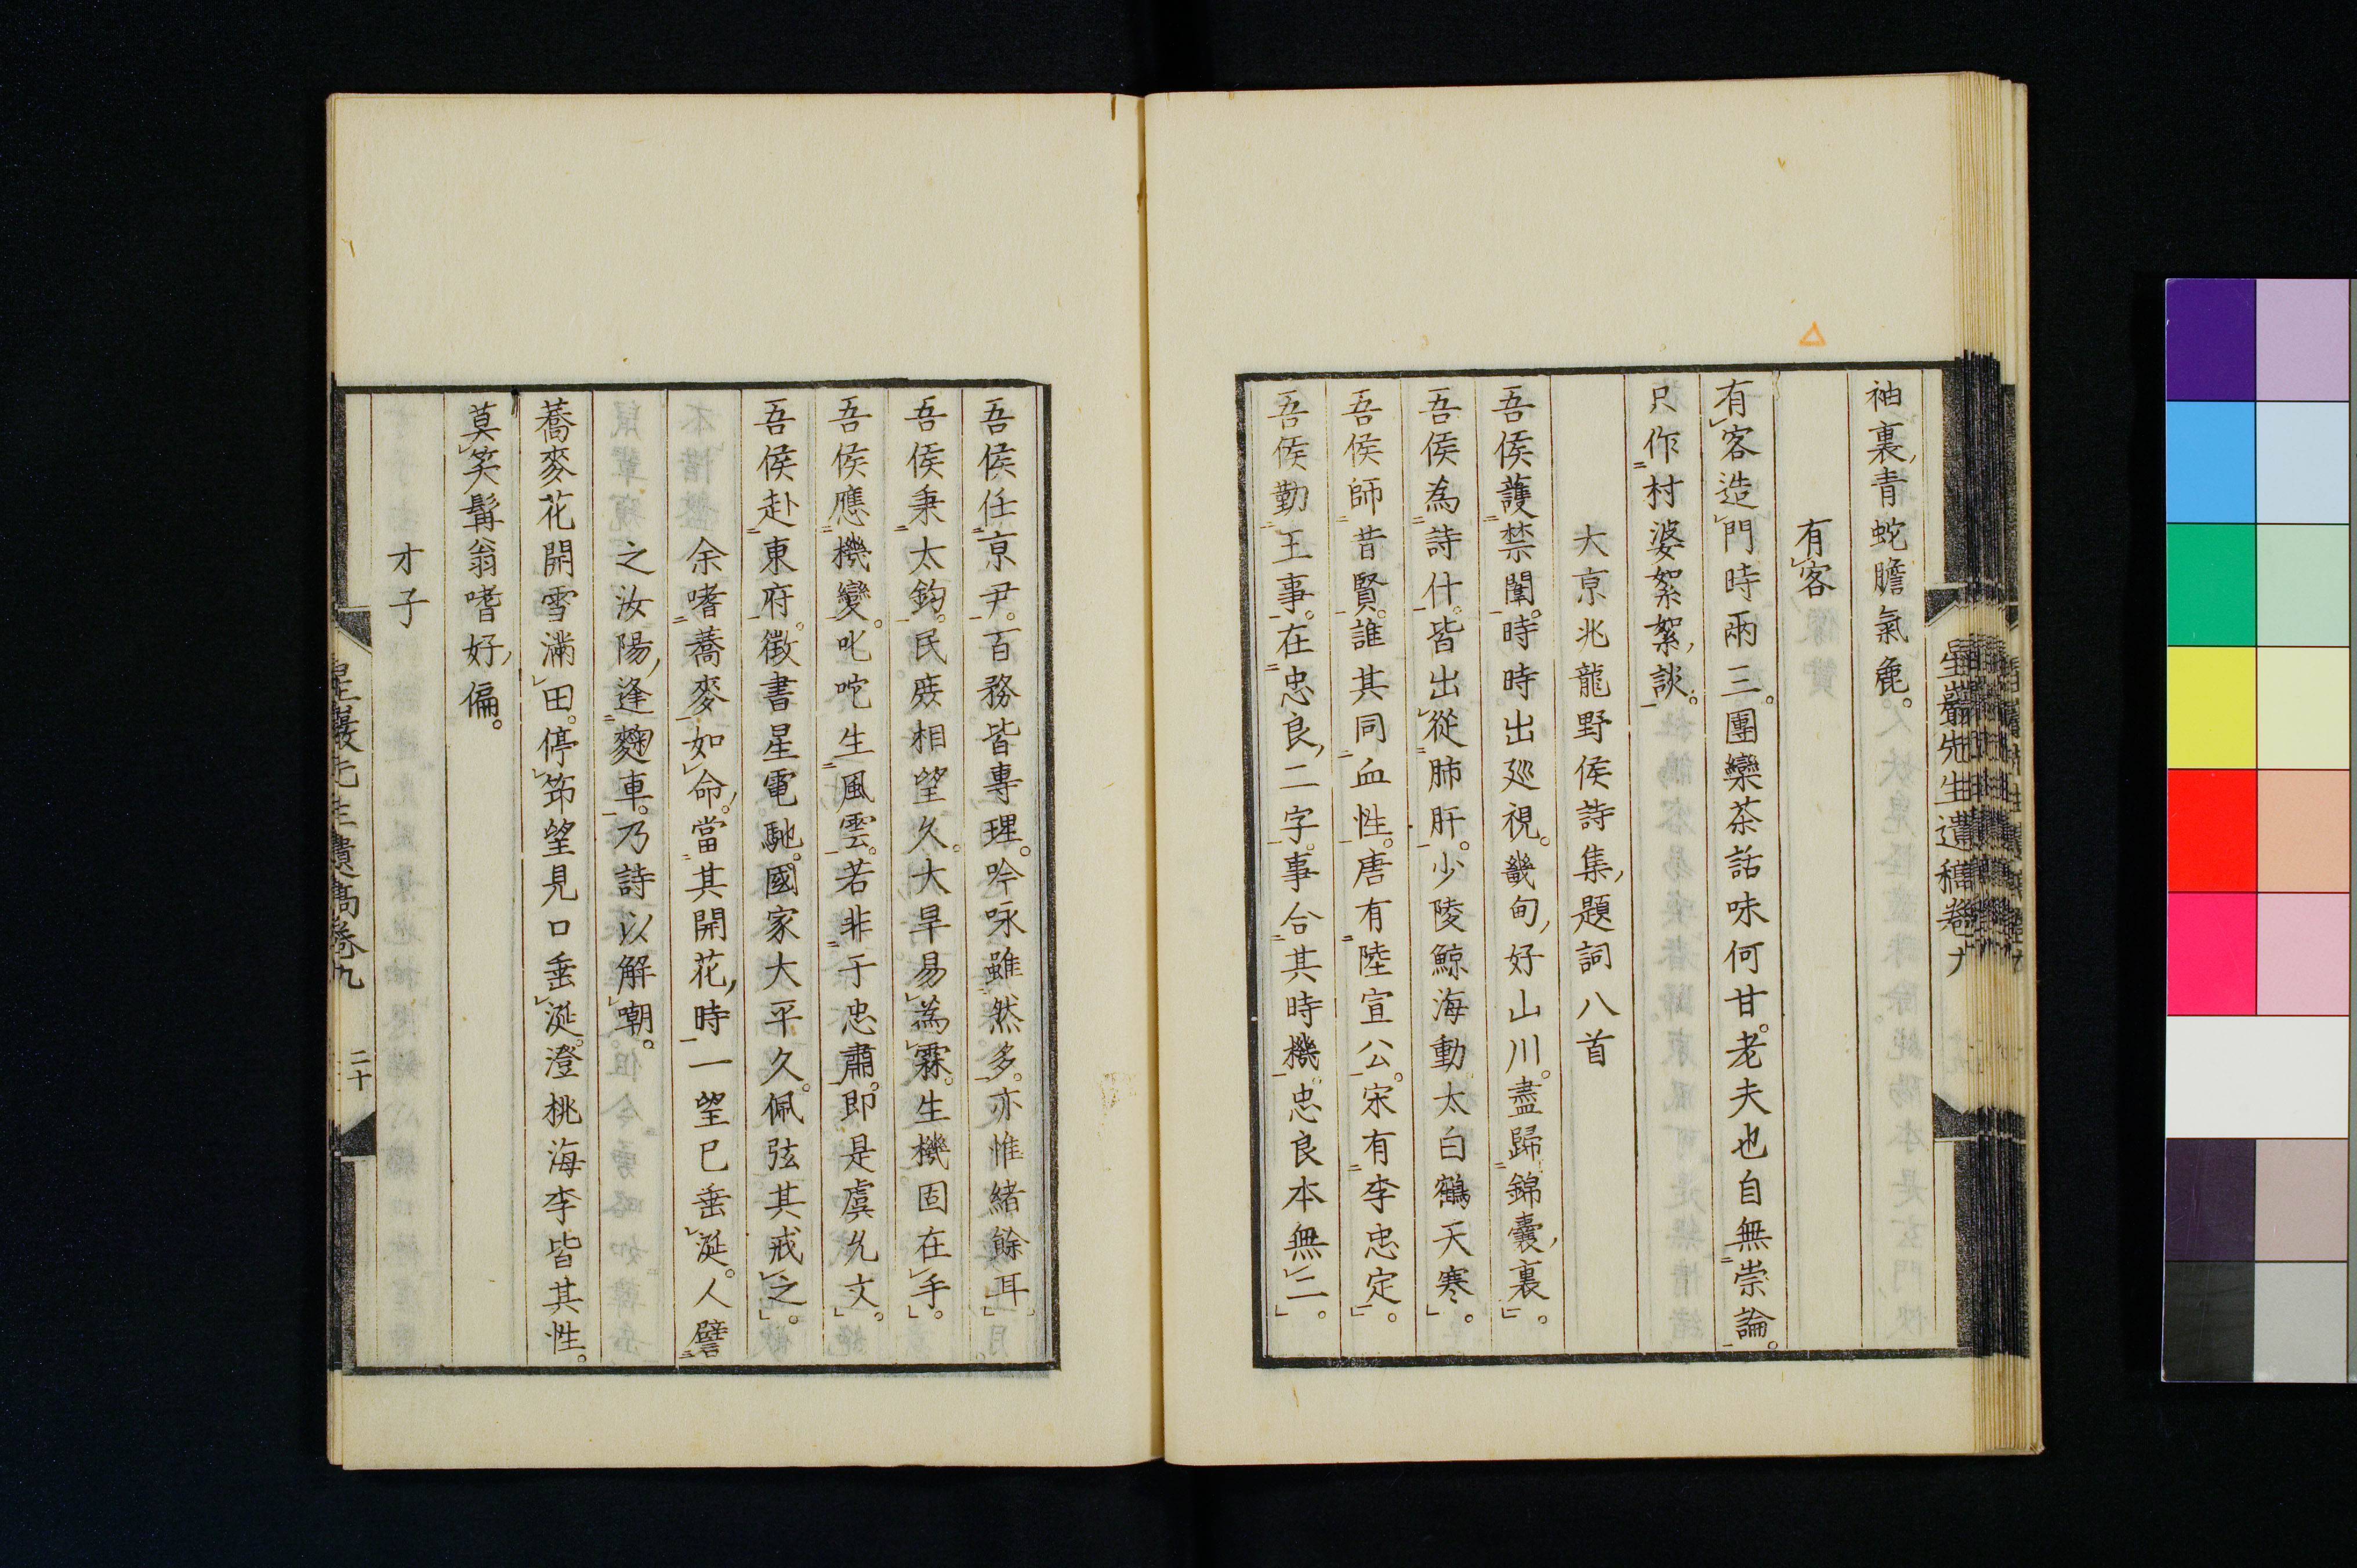 袖裏青蛇膽氣麁。
有客
有客造門時兩三。團欒茶話味何甘。老夫也自無崇論。
只作村婆絮絮談。
大亰兆龍野侯詩集題詞八首
吾侯護禁闈。時時出廵視。畿甸好山川。盡歸錦囊裏。
吾侯為詩什。皆出從肺肝。少陵鯨海動太白鶴天寒。
吾侯師昔賢。誰其同血性。唐有陸宣公。宋有李忠定。
吾侯勤王事。在忠良二字。事合其時機。忠良本無二。
吾侯任亰尹。百務皆專理。吟咏雖然多。亦惟緒餘耳
吾侯秉太鈞。民庻相望久。大旱易為霖。生機固在手。
吾侯應機變。叱咤生風雲。若非于忠肅。即是虞允文。
吾侯赴東府。徵書星電馳。國家大平久。佩弦其戒之。
余嗜蕎麥如命。當其開花時一望已垂涎。人譬
之汝陽逢麴車。乃詩以解嘲。
蕎麥花開雪滿田。停筇望見口垂涎。澄桃海李皆其性。
莫笑髯翁嗜好偏。
才子
星巖先生遺稿卷九
二十
星巖先生遺稿卷